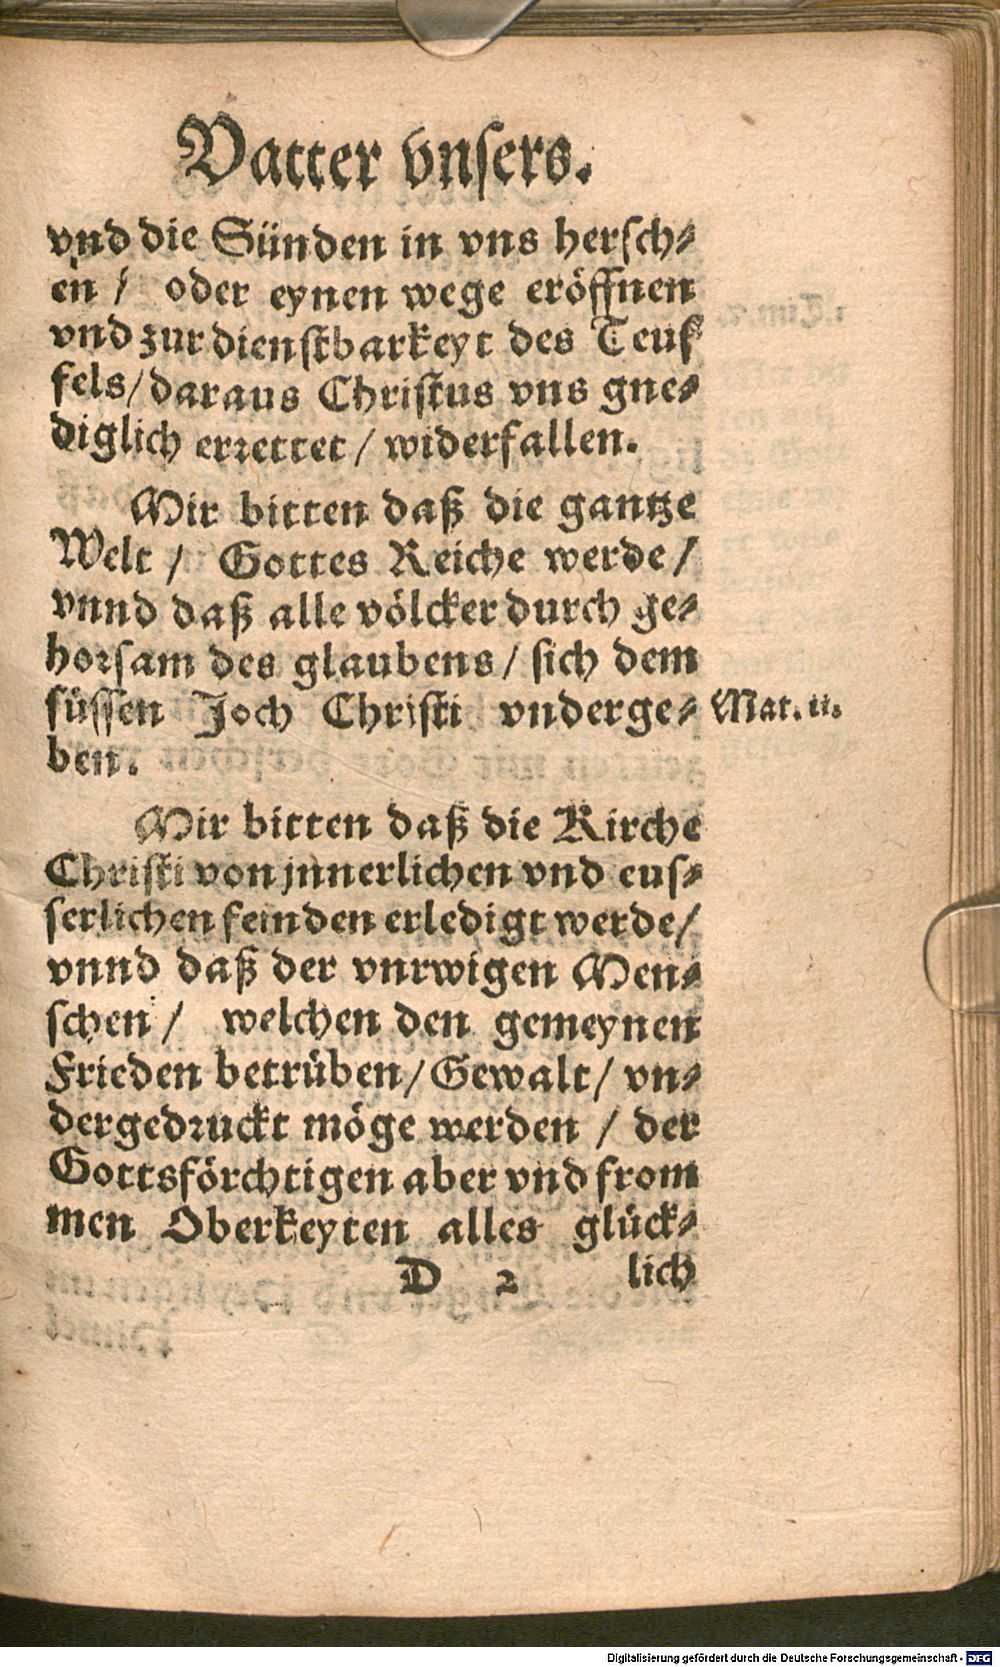 Vatter vnsers.
vnd die Sünden in vns hersch⸗
en / oder eynen wege eröffnen
vnd zur dienstbarkeyt des Teuf
fels / daraus Christus vns gne⸗
diglich errettet / widerfallen.
Wir bitten daß die gantze
Welt / Gottes Reiche werde /
vnnd daß alle völcker durch ge⸗
horsam des glaubens / sich dem
süssen Joch Christi vnderge⸗
Mat. 11.
ben.
Wir bitten daß die Kirche
Christi von jnnerlichen vnd eus⸗
serlichen feinden erledigt werde /
vnnd daß der vnrwigen Men⸗
schen / welchen den gemeynen
Frieden betrüben / Gewalt / vn⸗
dergedruckt möge werden / der
Gottsförchtigen aber vnd from
men Oberkeyten alles glück⸗
D 2 lich
Digitalisierung gefördert durch die Deutsche Forschungsgemeinschaft - DFG